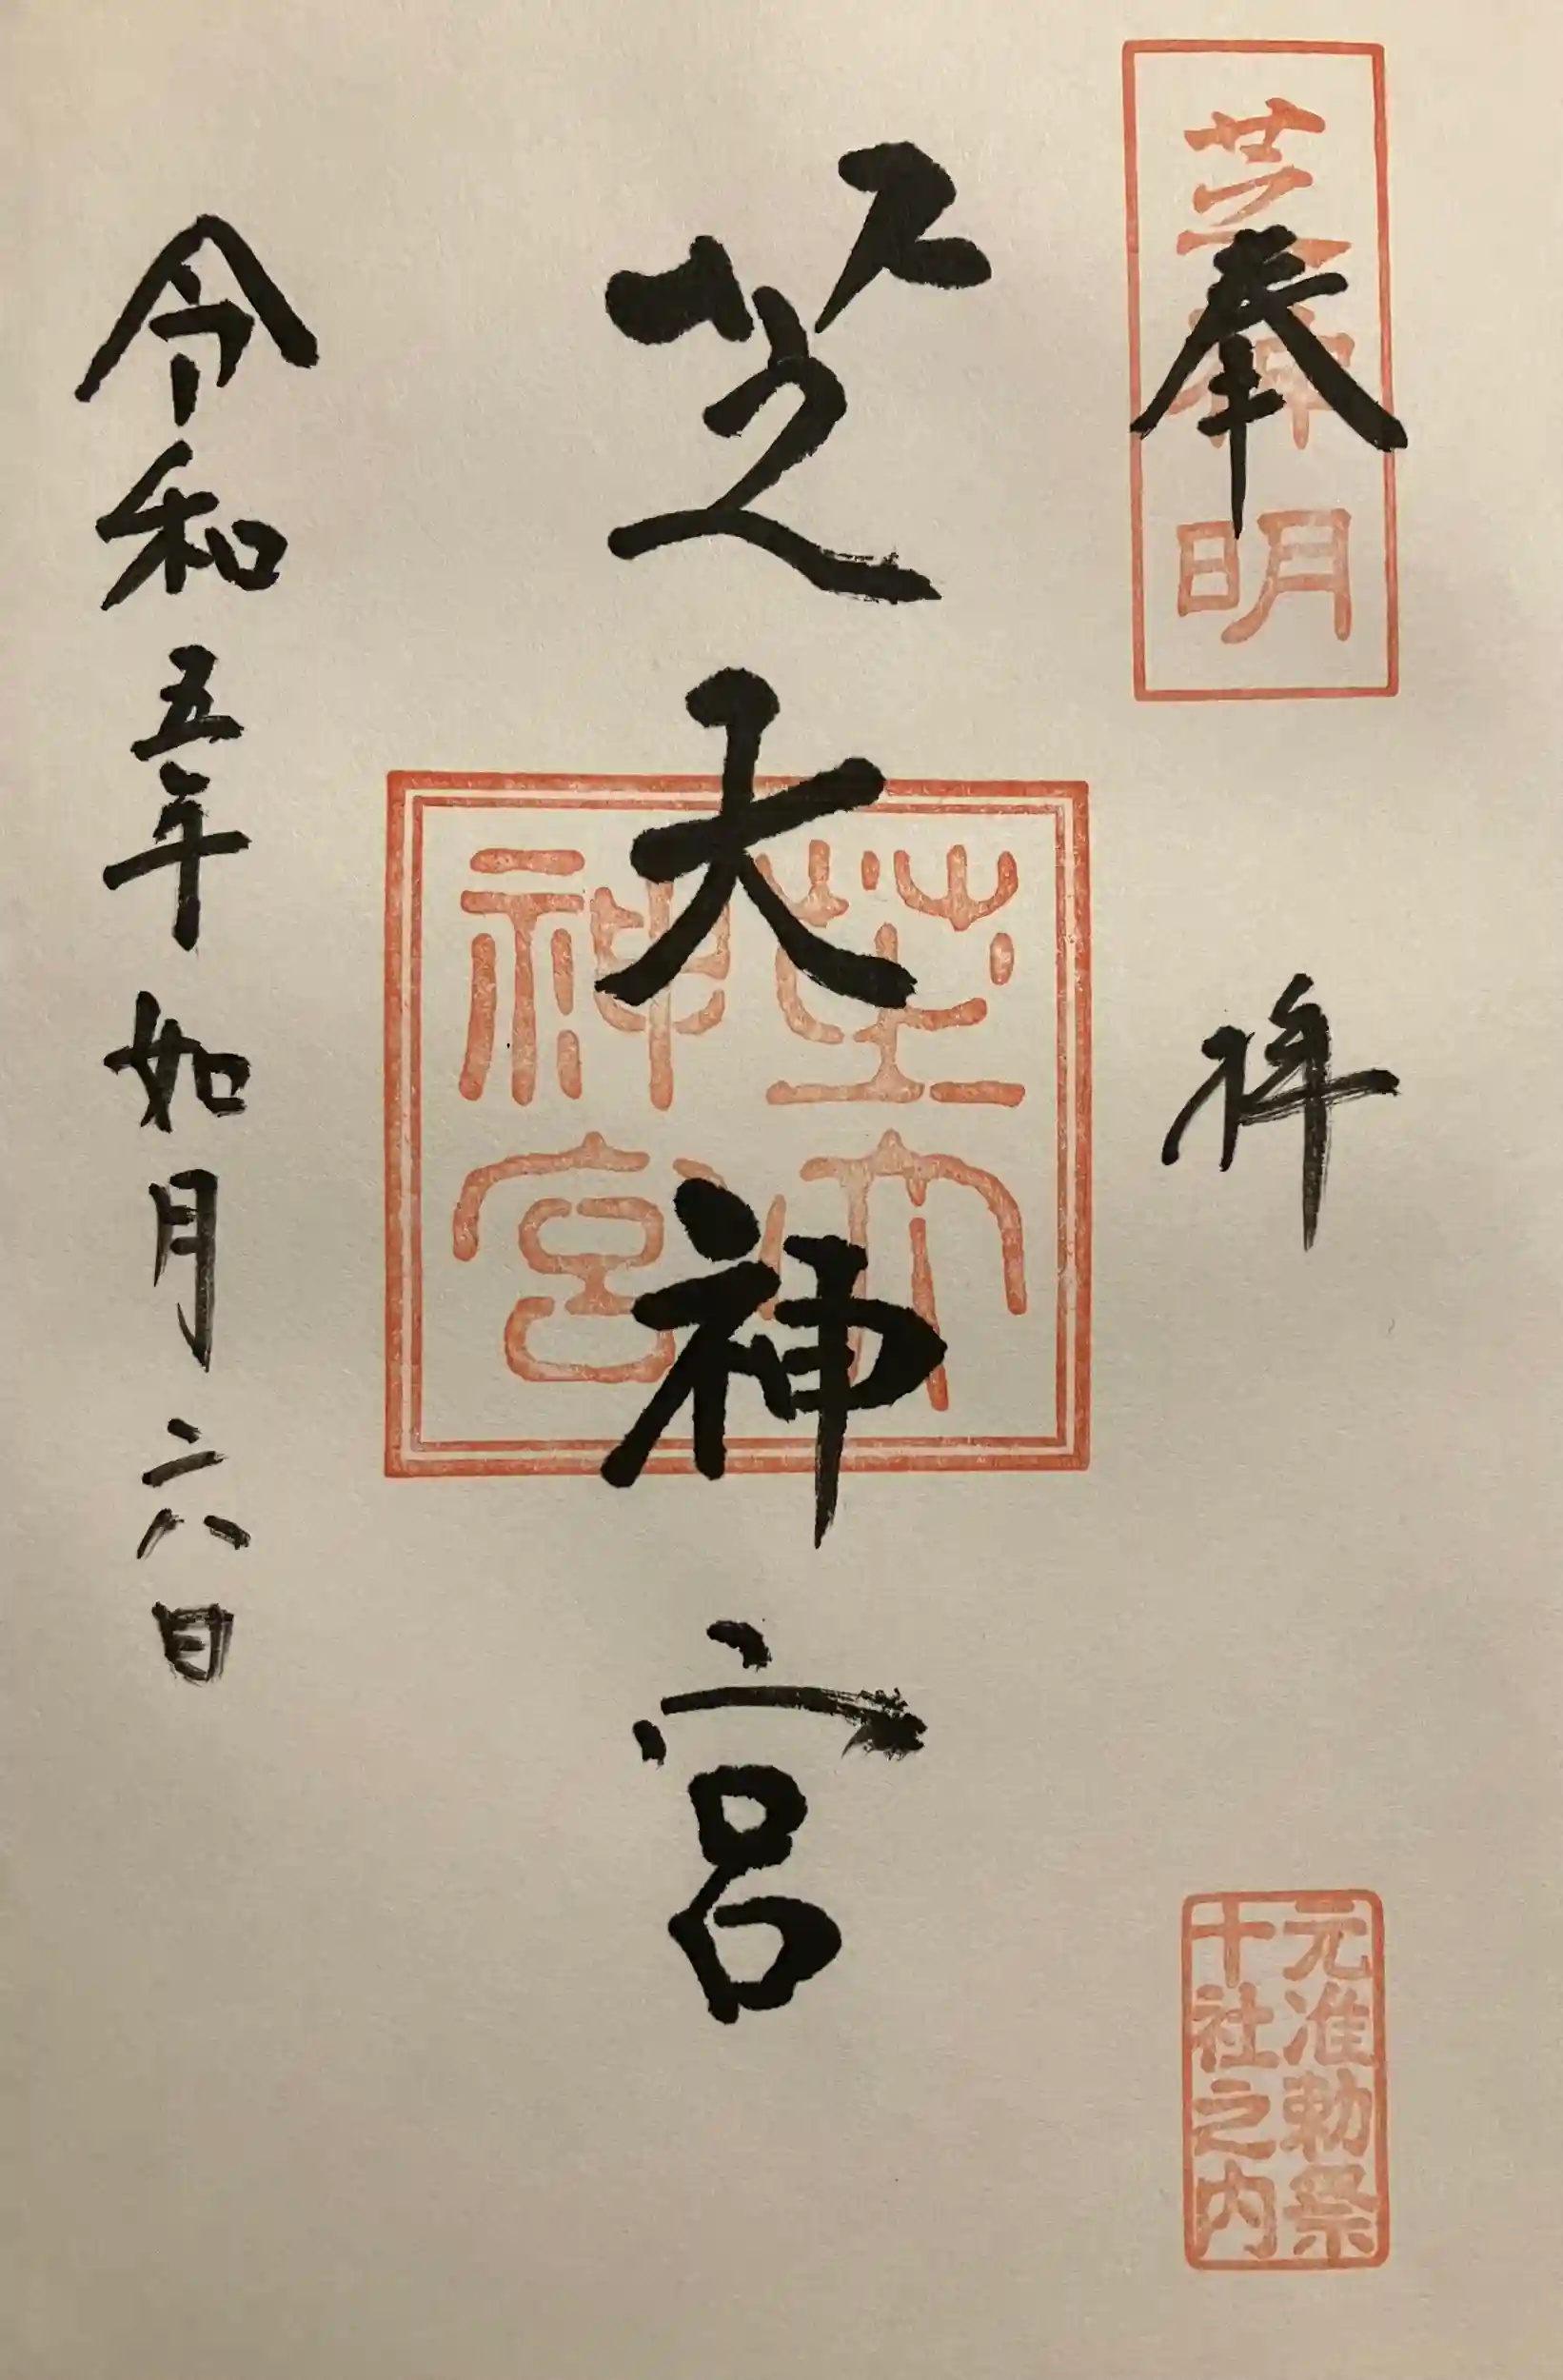 芝神明
奉拝
元准勅祭
十社之内
芝大神宮
芝大
神宮
令和五年如月六日